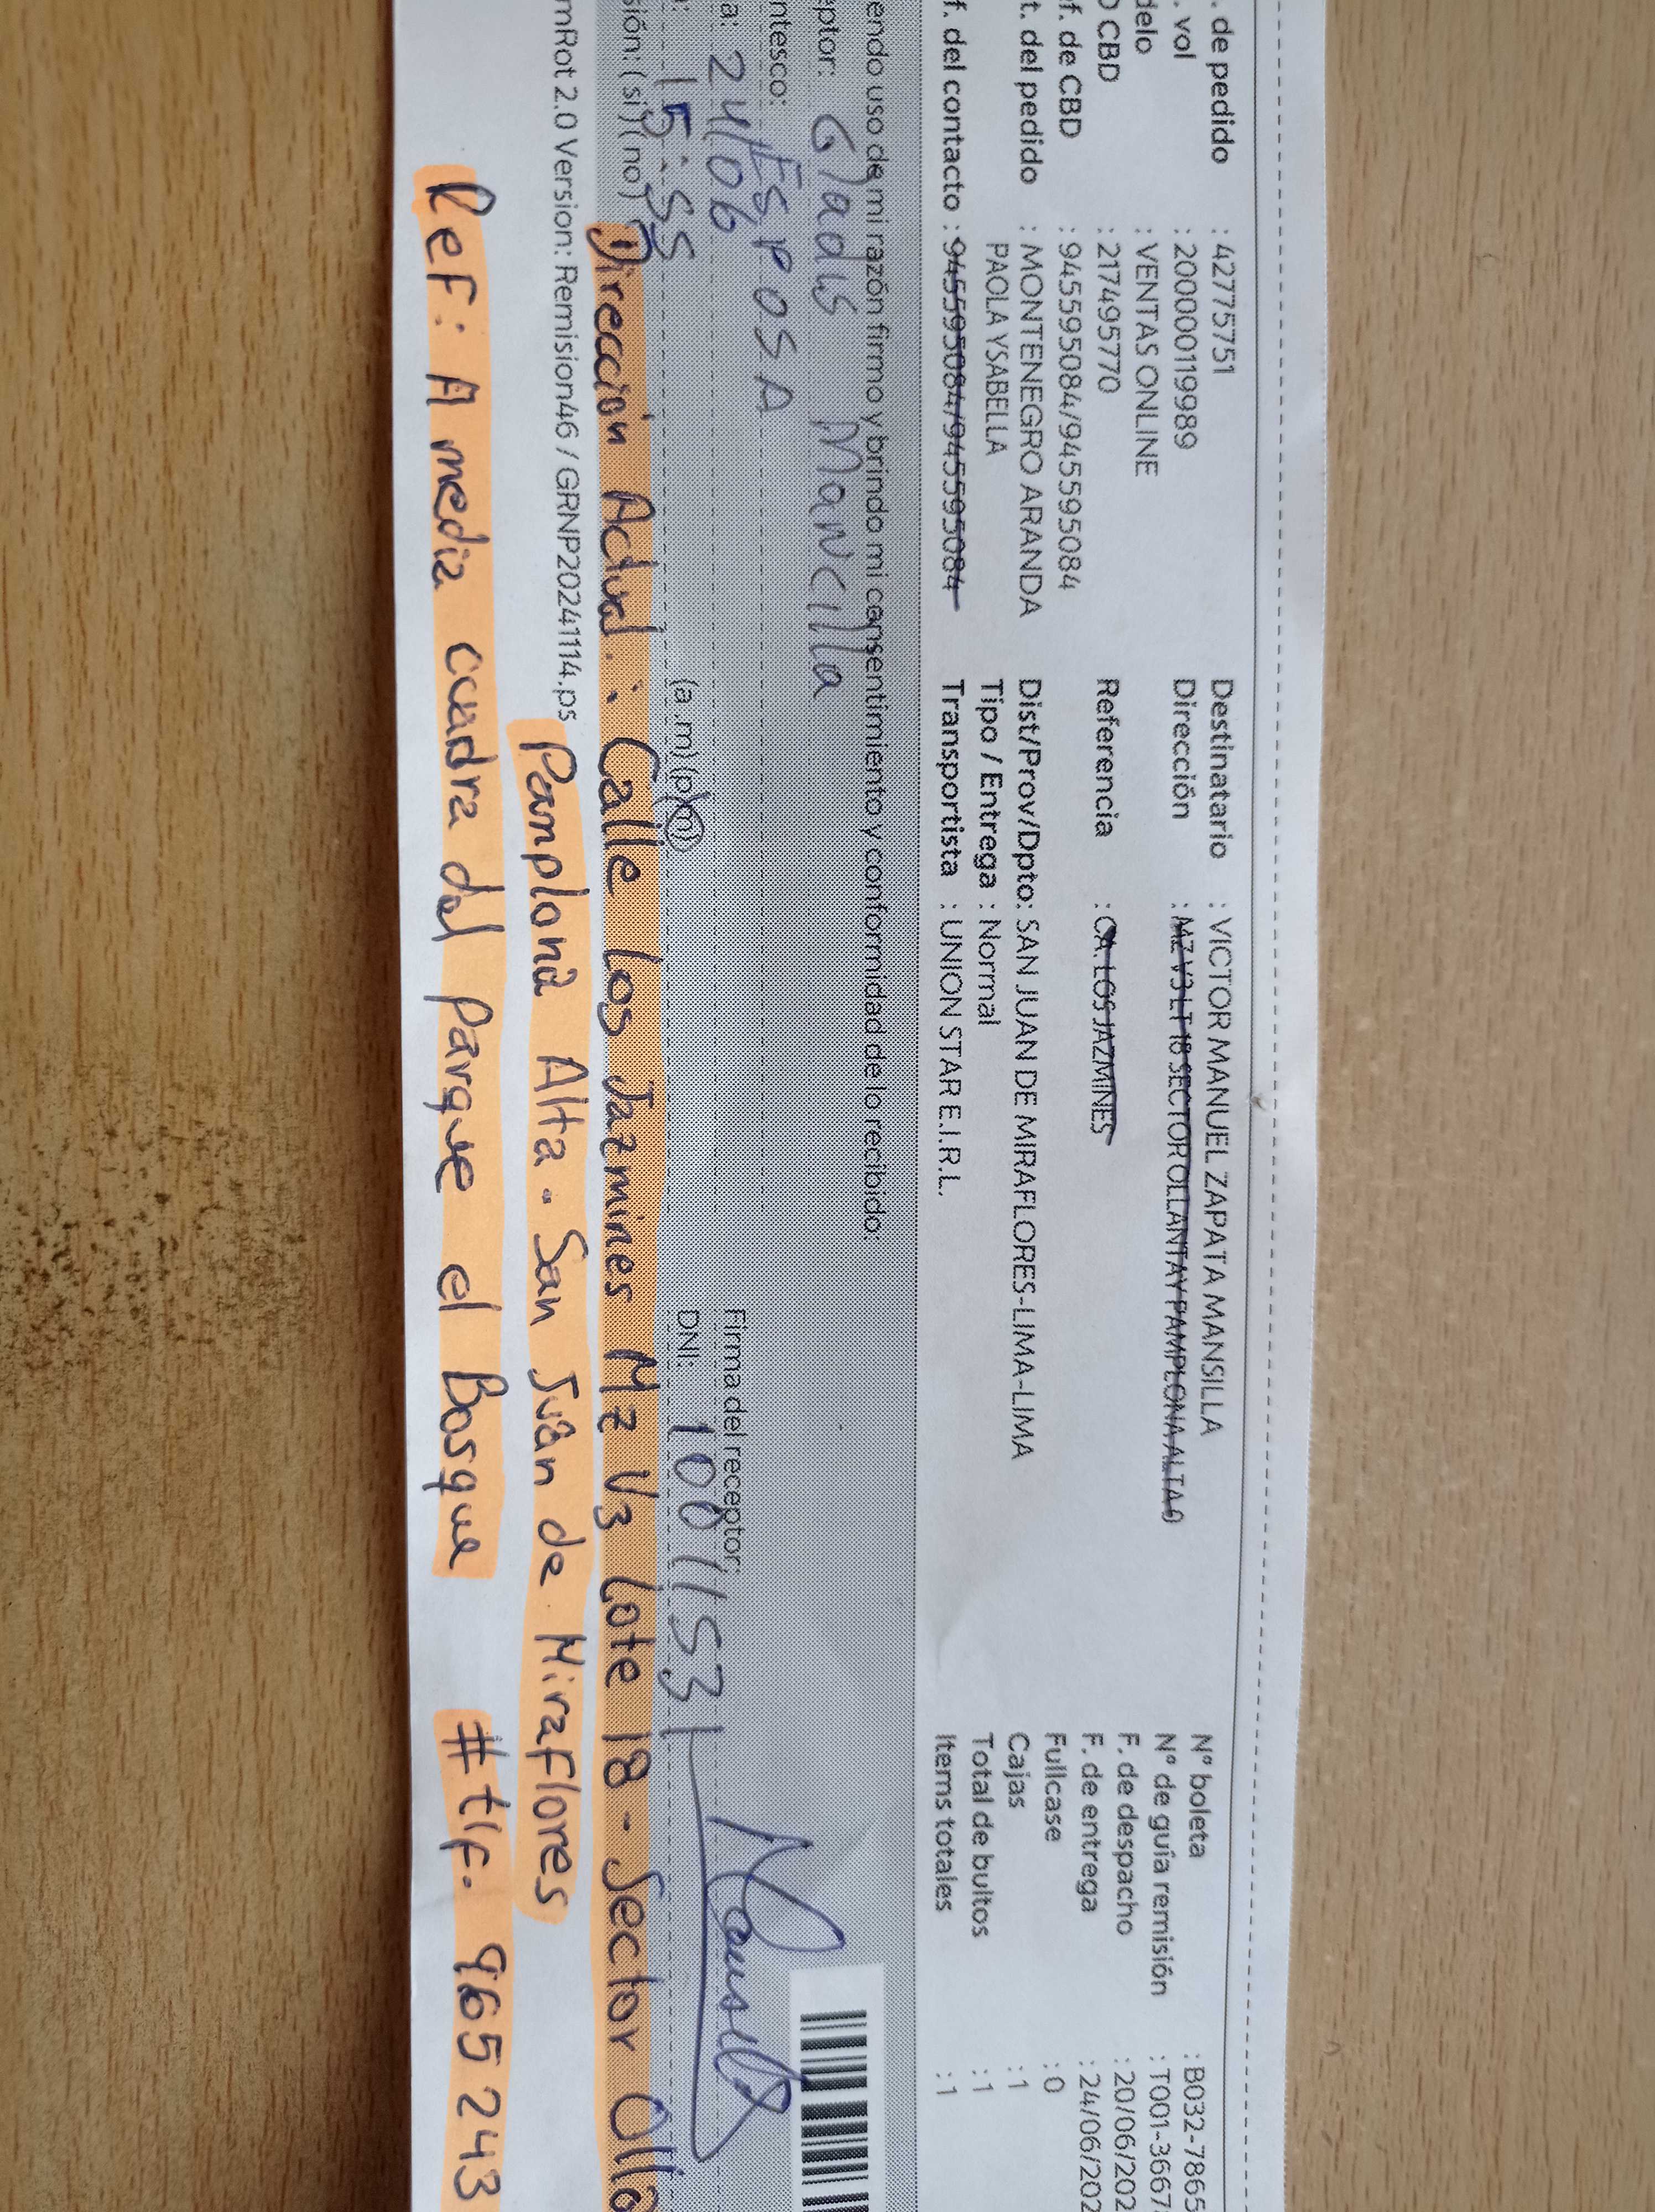 . de pedido : 42775751
. vol : 200000119989
delo : VENTAS ONLINE
O CBD : 217495770
f. de CBD : 945595084/945595084
t. del pedido : MONTENEGRO ARANDA
PAOLA YSABELLA
f. del contacto : 945595084/945595084
Destinatario : VICTOR MANUEL ZAPATA MANSILLA
Dirección : MZ V3 LT 18 SECTOR OLLANTAY PAMPLONA ALTA
Referencia : CA. LOS JAZMINES
Dist/Prov/Dpto: SAN JUAN DE MIRAFLORES-LIMA-LIMA
Tipo / Entrega : Normal
Transportista : UNION STAR E.I.R.L.
N° boleta : B032-7865
N° de guía remisión : T001-3667
F. de despacho : 20/06/202
F. de entrega : 24/06/202
Fullcase : 0
Cajas : 1
Total de bultos : 1
Items totales : 1
endo uso de mi razón firmo y brindo mi consentimiento y conformidad de lo recibido:
eptor: Gladis Mancilla
ntesco: Esposa
a: 24/06
Firma del receptor:
: 15:55 (a.m)(p.m)
DNI: 10071531
sión: (si)(no)
Dirección Actual: Calle Los Jazmines Mz V3 Lote 18 - Sector Olla
mRot 2.0 Version: Remision46 / GRNP20241114.ps
Pamplona Alta. San Juan de Miraflores
Ref: A media cuadra del parque el Bosque #tlf. 965 243